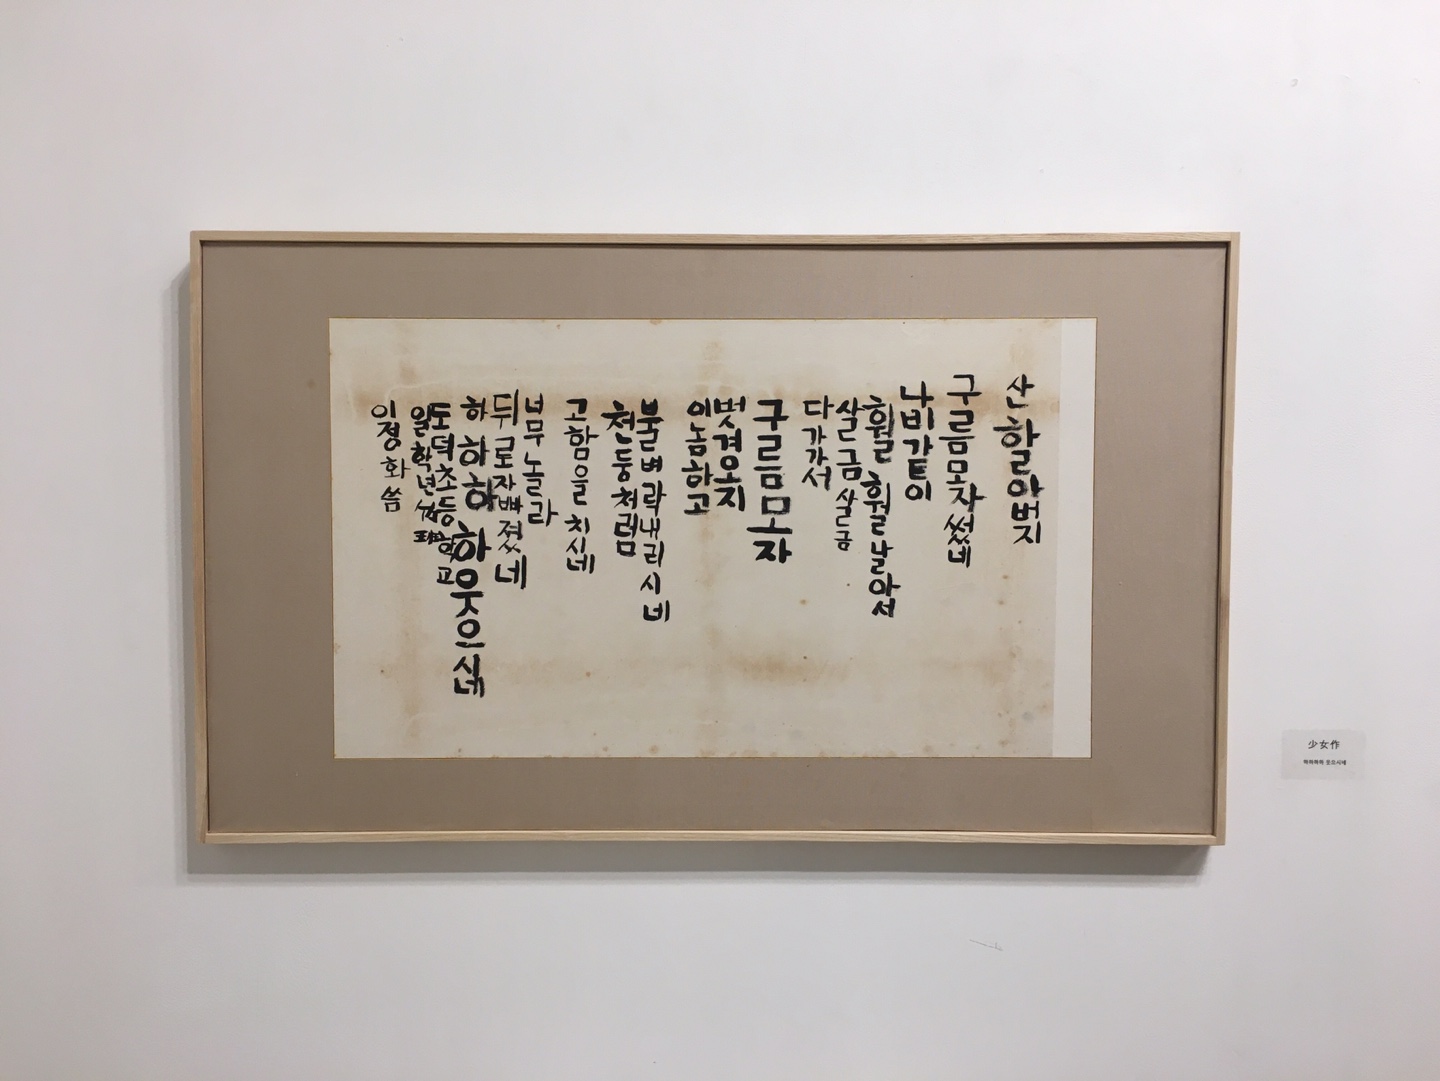 산할아버지
구름모자썼네
나비같이
훨훨날아서
살금살금
다가가서
구름모자
벗겨오지
이놈하고
불벼락내리시네
천둥처럼
고함을치시네
너무놀라
뒤로자빠졌네
하하하하웃으시네
도덕초등학교
일학년
이정화씀
少女作
하하하하 웃으시네